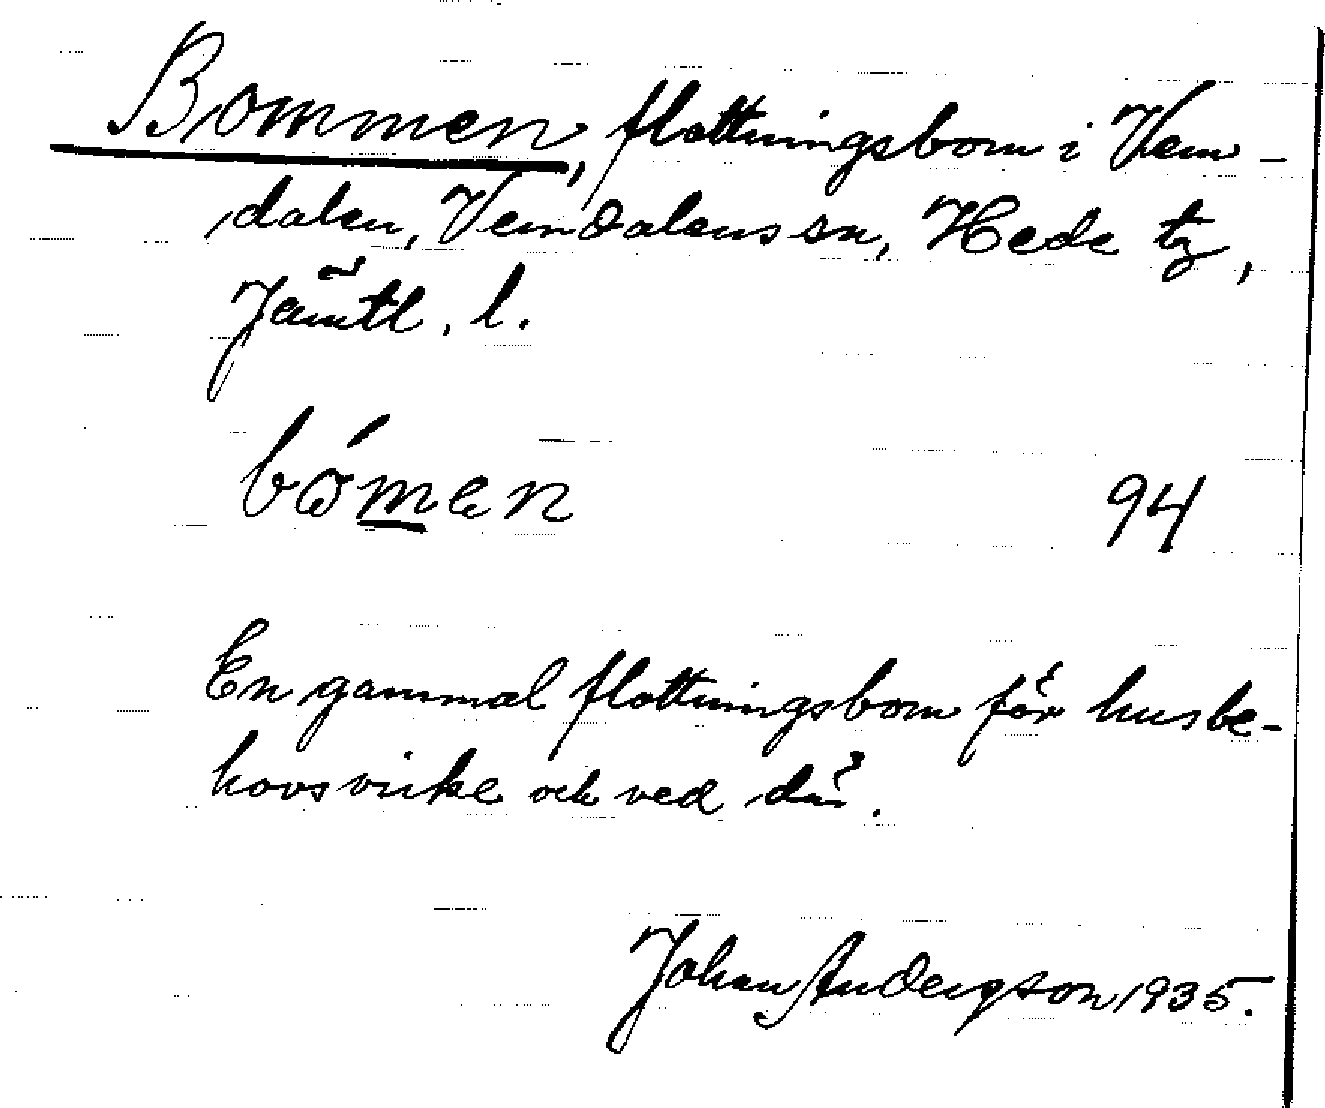 Bommen, flottningsbom i Vem-
dalen, Vemdalens sn, Hede tg,
Jämtl. l.
bómen 94
En gammal flottningsbom för husbe-
hovsvirke och ved där.
Johan Andersson 1935.